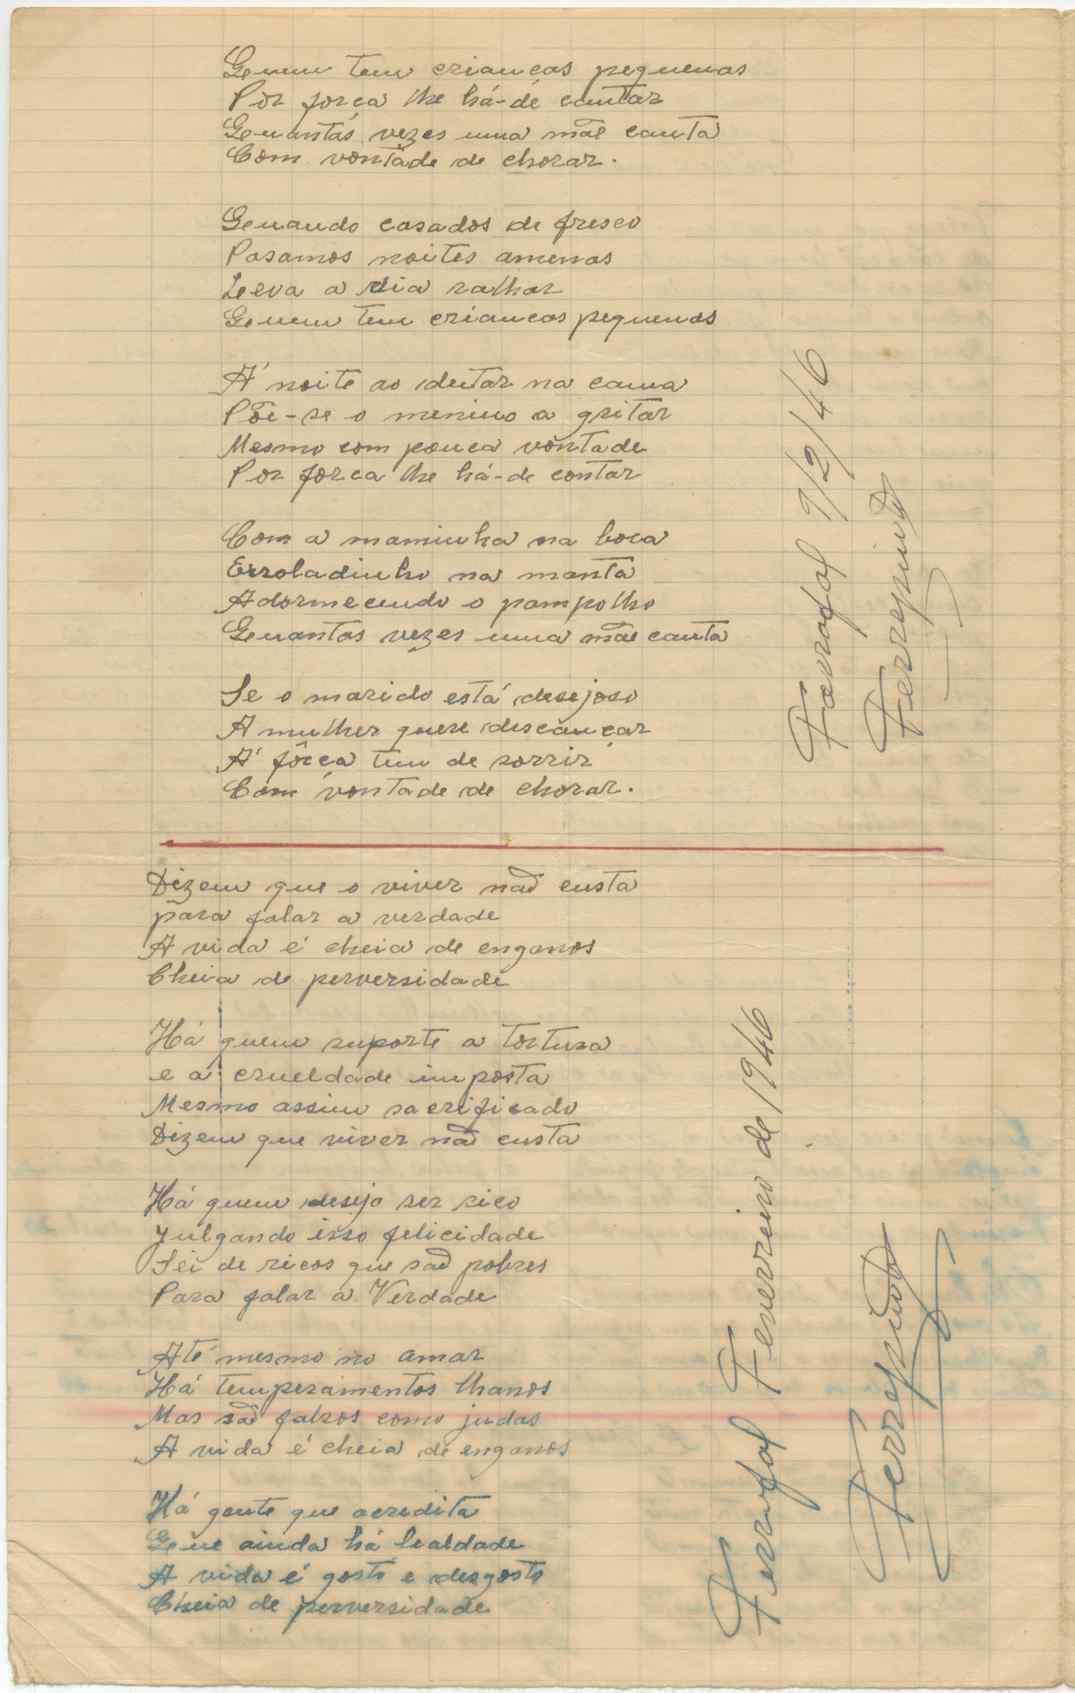 Quem tem crianças pequenas
Por força lhe há-de cantar
Quantas vezes uma mãe canta
Com vontade de chorar.
Quando casados de fresco
Pasamos noites amenas
Leva a dia ralhar
Quem tem crianças pequenas
Á noite ao deitar na cama
Põe-se o menino a gritar
Mesmo com pouca vontade
Por força lhe há-de contar
Com a maminha na boca
Enroladinho na manta
Adormecendo o pampolho
Quantas vezes uma mãe canta
Se o marido está desejoso
A mulher quere descançar
Á fôrça tem de sorrir
Com vontade de chorar.
9/2/46
Ferrepindo
Dizem que o viver não custa
para falar a verdade
A vida é cheia de enganos
Cheia de perversidade
Há quem suporte a tortura
e a crueldade imposta
Mesmo assim sacrificado
Dizem que viver não custa
Há quem deseja ser rico
Julgando isso felicidade
Sei de ricos que são pobres
Para falar a Verdade
Até mesmo no amar
Há temperamentos lhanos
Mas são falsos como judas
A vida é cheia de enganos
Há gente que acredita
Que ainda há lealdade
A vida é gosto e desgosto
Cheia de perversidade
Fevereiro de 1946
Ferrepindo